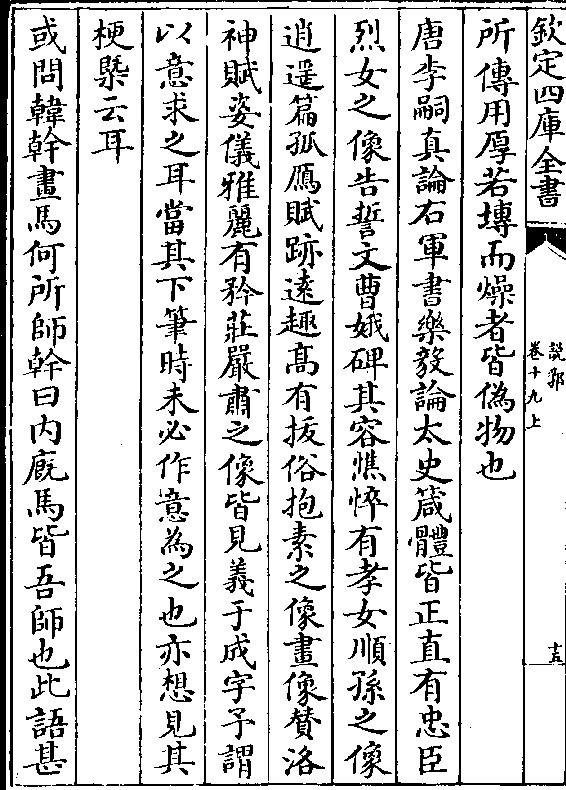 欽定四庫全書
說郛
卷十九上
十五
所傳用厚若塼而燥者皆偽物也
唐李嗣真論右軍書樂毅論太史箴體皆正直有忠臣
烈女之像告誓文曹娥碑其容憔悴有孝女順孫之像
逍遥篇孤鴈賦跡逺趣髙有拔俗抱素之像畫像賛洛
神賦姿儀雅麗有矜莊嚴肅之像皆見義于成字予謂
以意求之耳當其下筆時未必作意為之也亦想見其
梗槩云耳
或問韓幹畫馬何所師幹曰内廐馬皆吾師也此語甚